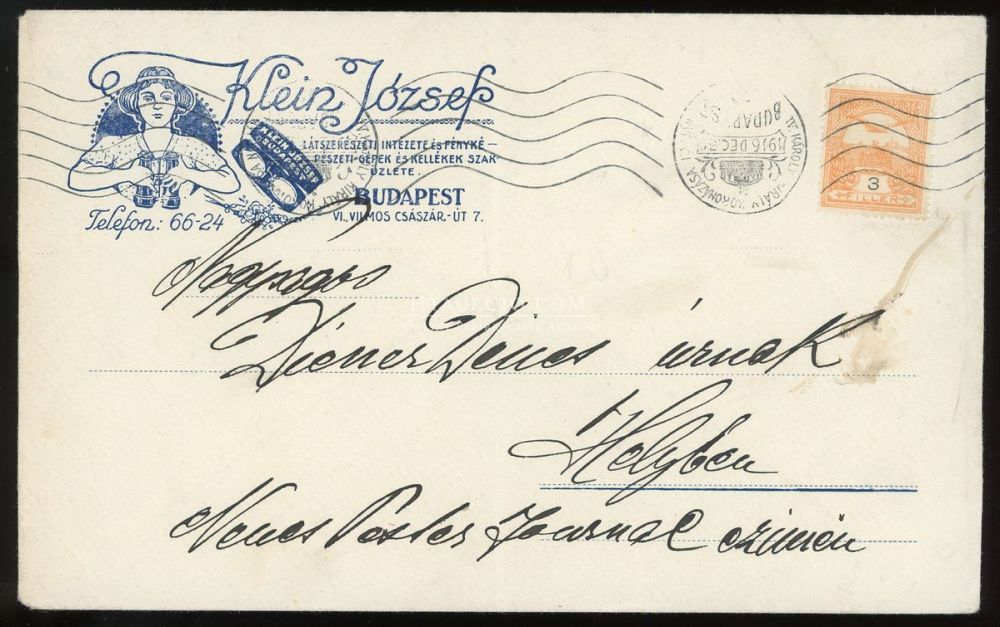 Klein József
LÁTSZERÉSZETI INTÉZETE és FÉNYKÉ-
PÉSZETI-GÉPEK és KELLÉKEK SZAK-
ÜZLETE.
BUDAPEST
VI., VILMOS CSÁSZÁR-ÚT 7.
Telefon: 66-24
KLEIN JÓZSEF
BUDAPEST
IV. KÁROLY KIRÁLY KORONÁZÁSA
BUDAPEST
1916 DEC
3
FILLÉR
Nagyságos
Diener Dénes úrnak
Helyben
Neues Pester Journal czimén